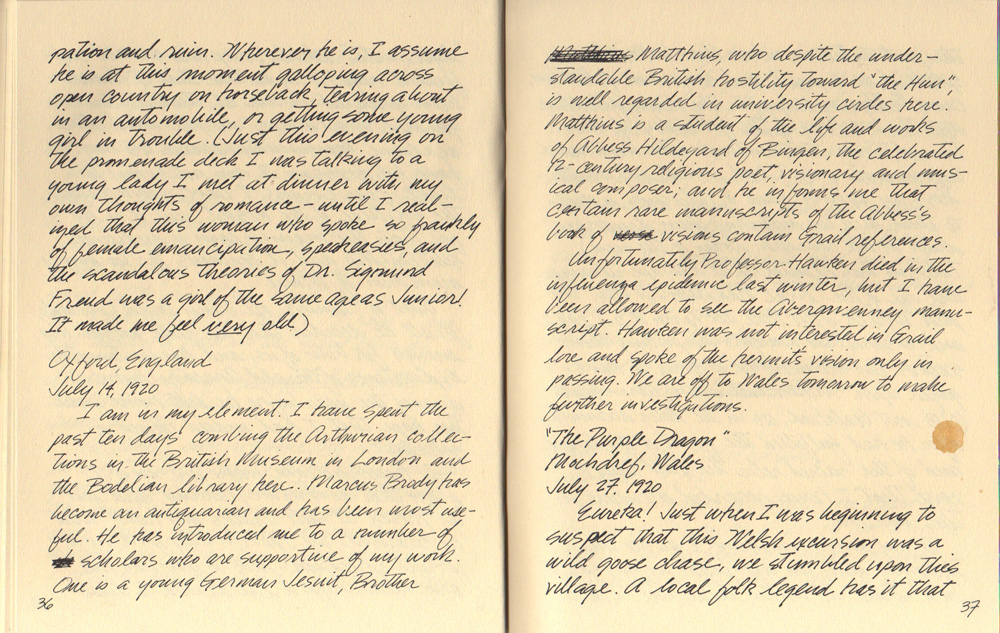 pation and ruin. Wherever he is, I assume
he is at this moment galloping across
open country on horseback, tearing about
in an automobile, or getting some young
girl in trouble. (Just this evening on
the promenade deck I was talking to a
young lady I met at dinner with my
own thoughts of romance - until I real-
ized that this woman who spoke so frankly
of female emancipation, speakeasies, and
the scandalous theories of Dr. Sigmund
Freud was a girl of the same age as Junior!
It made me feel very old.)
Oxford, England
July 14, 1920
I am in my element. I have spent the
past ten days combing the Arthurian collec-
tions in the British Museum in London and
the Bodelian library here. Marcus Brody has
become an antiquarian and has been most use-
ful. He has introduced me to a number of
scholars who are supportive of my work.
One is a young German Jesuit, Brother
36
Matthius, who despite the under-
standable British hostility toward "the Hun",
is well regarded in university circles here.
Matthius is a student of the life and works
of Abbess Hildegard of Bingen, the celebrated
12-century religious poet, visionary and mus-
ical composer; and he informs me that
certain rare manuscripts of the Abbess's
book of visions contain Grail references.
Unfortunately Professor Hawken died in the
influenza epidemic last winter, but I have
been allowed to see the Abergavenney manu-
script. Hawken was not interested in Grail
lore and spoke of the hermits vision only in
passing. We are off to Wales tomorrow to make
further investigations.
"The Purple Dragon"
Mochdref, Wales
July 27, 1920
Eureka! Just when I was beginning to
suspect that this Welsh excursion was a
wild goose chase, we stumbled upon this
village. A local folk legend has it that
37